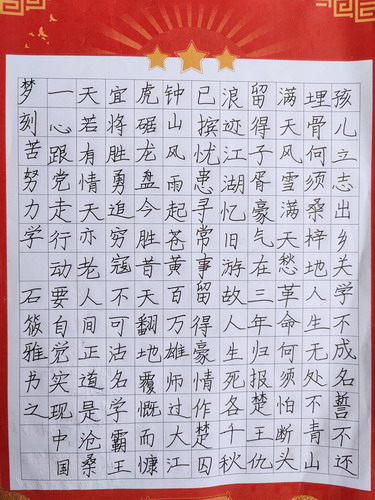 孩儿立志出乡关学不成名誓不还
埋骨何须桑梓地人生无处不青山
满天风雪满天愁革命何须怕断头
留得子胥豪气在三年归报楚王仇
浪迹江湖忆旧游故人生死各千秋
已摈忧患寻常事留得豪情作楚囚
钟山风雨起苍黄百万雄师过大江
虎踞龙盘今胜昔天翻地覆慨而慷
宜将胜勇追穷寇不可沽名学霸王
天若有情天亦老人间正道是沧桑
一心跟党走行动要自觉实现中国
梦刻苦努力学 石筱雅书之